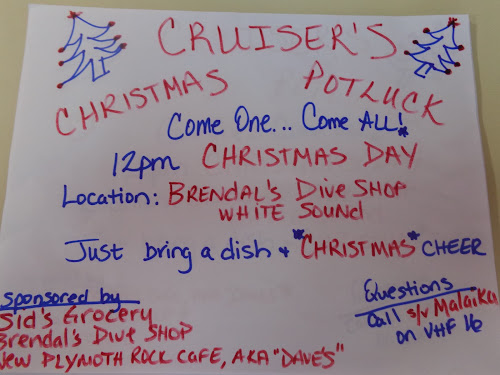 CRUISER'S
CHRISTMAS POTLUCK
Come One... Come ALL!*
12pm CHRISTMAS DAY
Location: BRENDAL'S Dive SHOP
WHITE SOUnd
Just bring a dish + *"CHRISTMAS"* CHEER
sponsored by
Sid's Grocery
Brendal's Dive SHOP
New PLYMOTH ROCK CAFE, AKA "DAVE'S"
Questions
Call s/v Malaika
on VHF 16